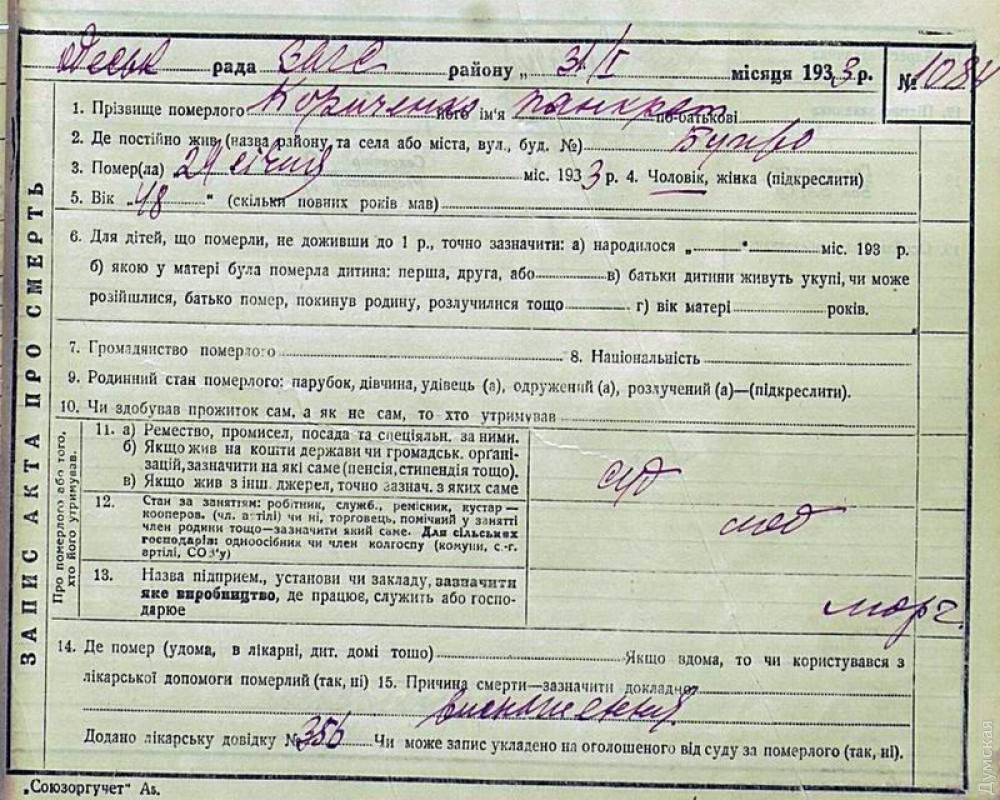 Одеськ рада ЗАГС району „ 31/I місяця 1933 р. № 1084
1. Прізвище померлого його ім'я Панкрат по-батькові
2. Де постійно жив (назва району та села або міста, вул., буд. №)
3. Помер(ла) січня міс. 1933 р. 4. Чоловік, жінка (підкреслити)
5. Вік „48“ (скільки повних років мав)
6. Для дітей, що померли, не доживши до 1 р., точно зазначити: а) народилося „ “ міс. 193 р.
б) якою у матері була померла дитина: перша, друга, або в) батьки дитини живуть укупі, чи може
розійшлися, батько помер, покинув родину, розлучилися тощо г) вік матері років.
7. Громадянство померлого 8. Національність
9. Родинний стан померлого: парубок, дівчина, удівець (а), одружений (а), розлучений (а)—(підкреслити).
10. Чи здобував прожиток сам, а як не сам, то хто утримував
ЗАПИС АКТА ПРО СМЕРТЬ
Про померлого або того,
хто його утримував.
11. а) Ремество, промисел, посада та спеціяльн. за ними.
б) Якщо жив на кошти держави чи громадськ. орґані-
зацій, зазначити на які саме (пенсія, стипендія тощо).
в) Якщо жив з інш. джерел, точно зазнач. з яких саме
суд
12. Стан за заняттям: робітник, служб., ремісник, кустар—
кооперов. (чл. артілі) чи ні, торговець, помічний у занятті
член родини тощо—зазначити який саме. Для сільських
господарів: одноосібник чи член колгоспу (комуни, с.-г.
артілі, СОЗ'у)
мед
13. Назва підприєм., установи чи закладу, зазначити
яке виробництво, де працює, служить або госпо-
дарює
морг.
14. Де помер (удома, в лікарні, дит. домі тощо) Якщо вдома, то чи користувався з
лікарської допомоги померлий (так, ні) 15. Причина смерти—зазначити докладно
виснаження
Додано лікарську довідку № 356 Чи може запис укладено на оголошеного від суду за померлого (так, ні).
„Союзоргучет“ Ав.
Думская